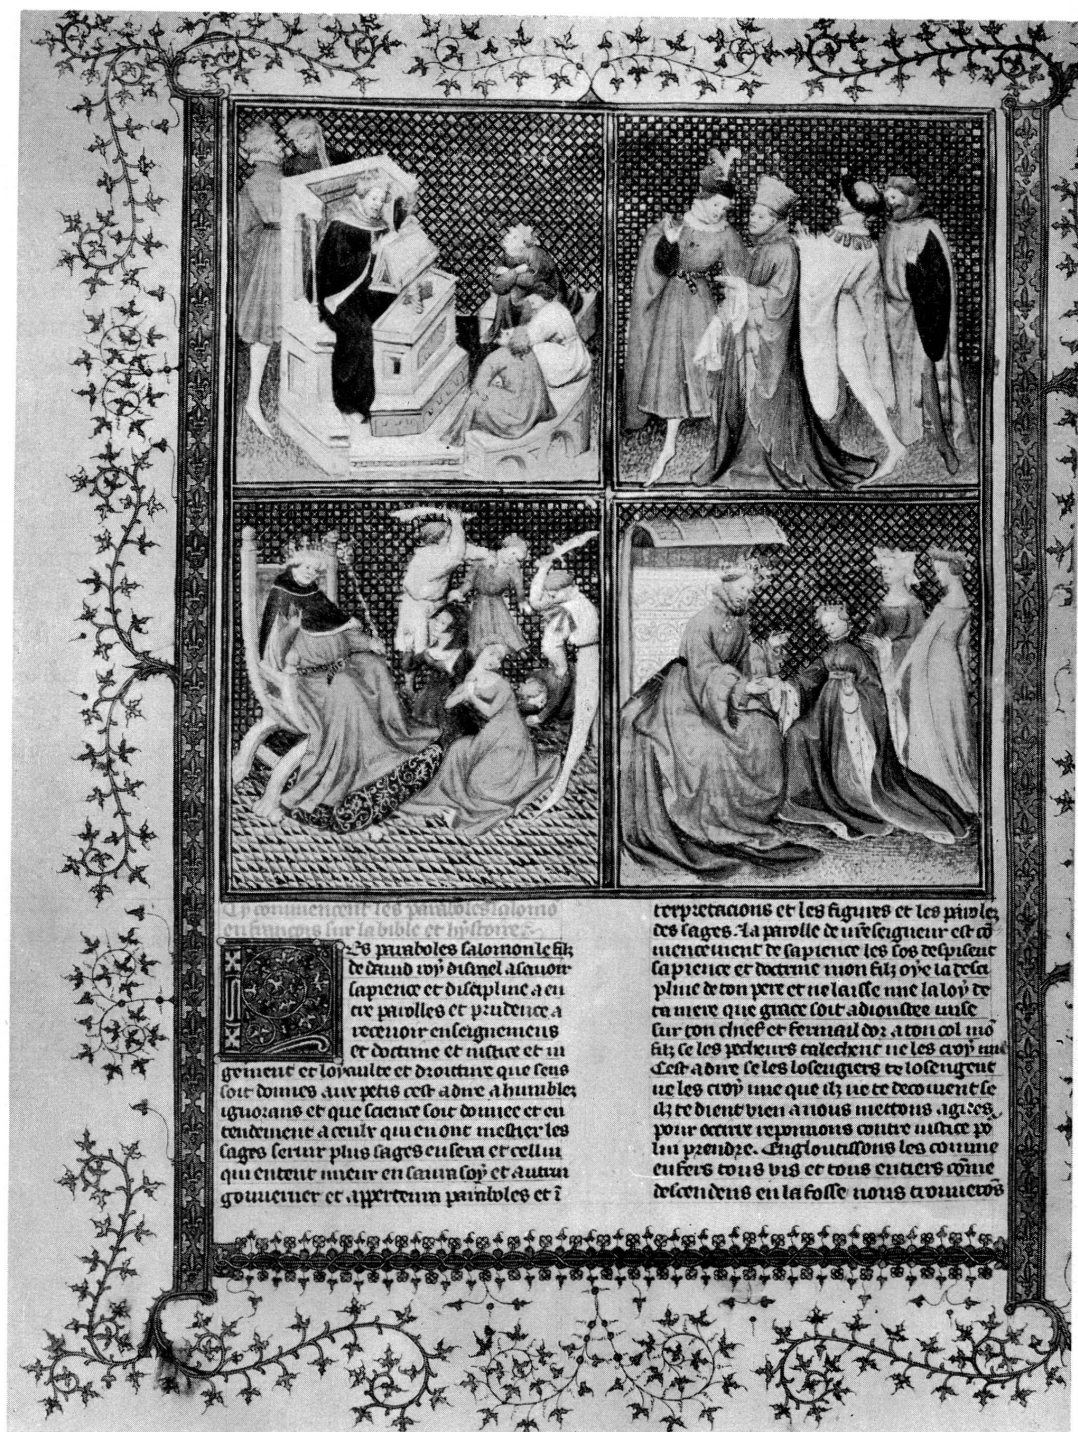 Cy commencent les paraboles salomō
en françois sur la bible et hystores
Les paraboles salomon le filz
de david roy disrael a savoir
sapience et discipline a en
tre parolles et prudence a
recevoir enseignemens
et doctrine et iustice et iu
gement et loyaulte et droitture que sens
soit donnes aux petis cest a dire a humbles
ignorans et que science soit donnee et en
tendement a ceulx qui en ont mestier les
sages seront plus sages en sera et cellui
qui entent mieux en saura soy et autrui
gouverner et appertenra paraboles et ī
terpretacions et les figures et les paroles
des sages. La parolle de nreseigneur est cō
mencement de sapience les sos despisent
sapience et doctrine mon filz oye la desci
pline de ton pere et ne laisse mie la loy de
ta mere que grace soit adioustee
sur ton chief et fermail dor a ton col mō
filz se les pecheurs talechent ne les croy mie
Cest a dire se les losengiers te losengent
ne les croy mie que ilz ne te decoivent se
ilz te dient vien a nous mettons agites
pour occire reponnons contre iustice pō
lui prendre. Engloutissons les comme
enfers tous vis et tous entiers cōme
descendens en la fosse nous trouverōs